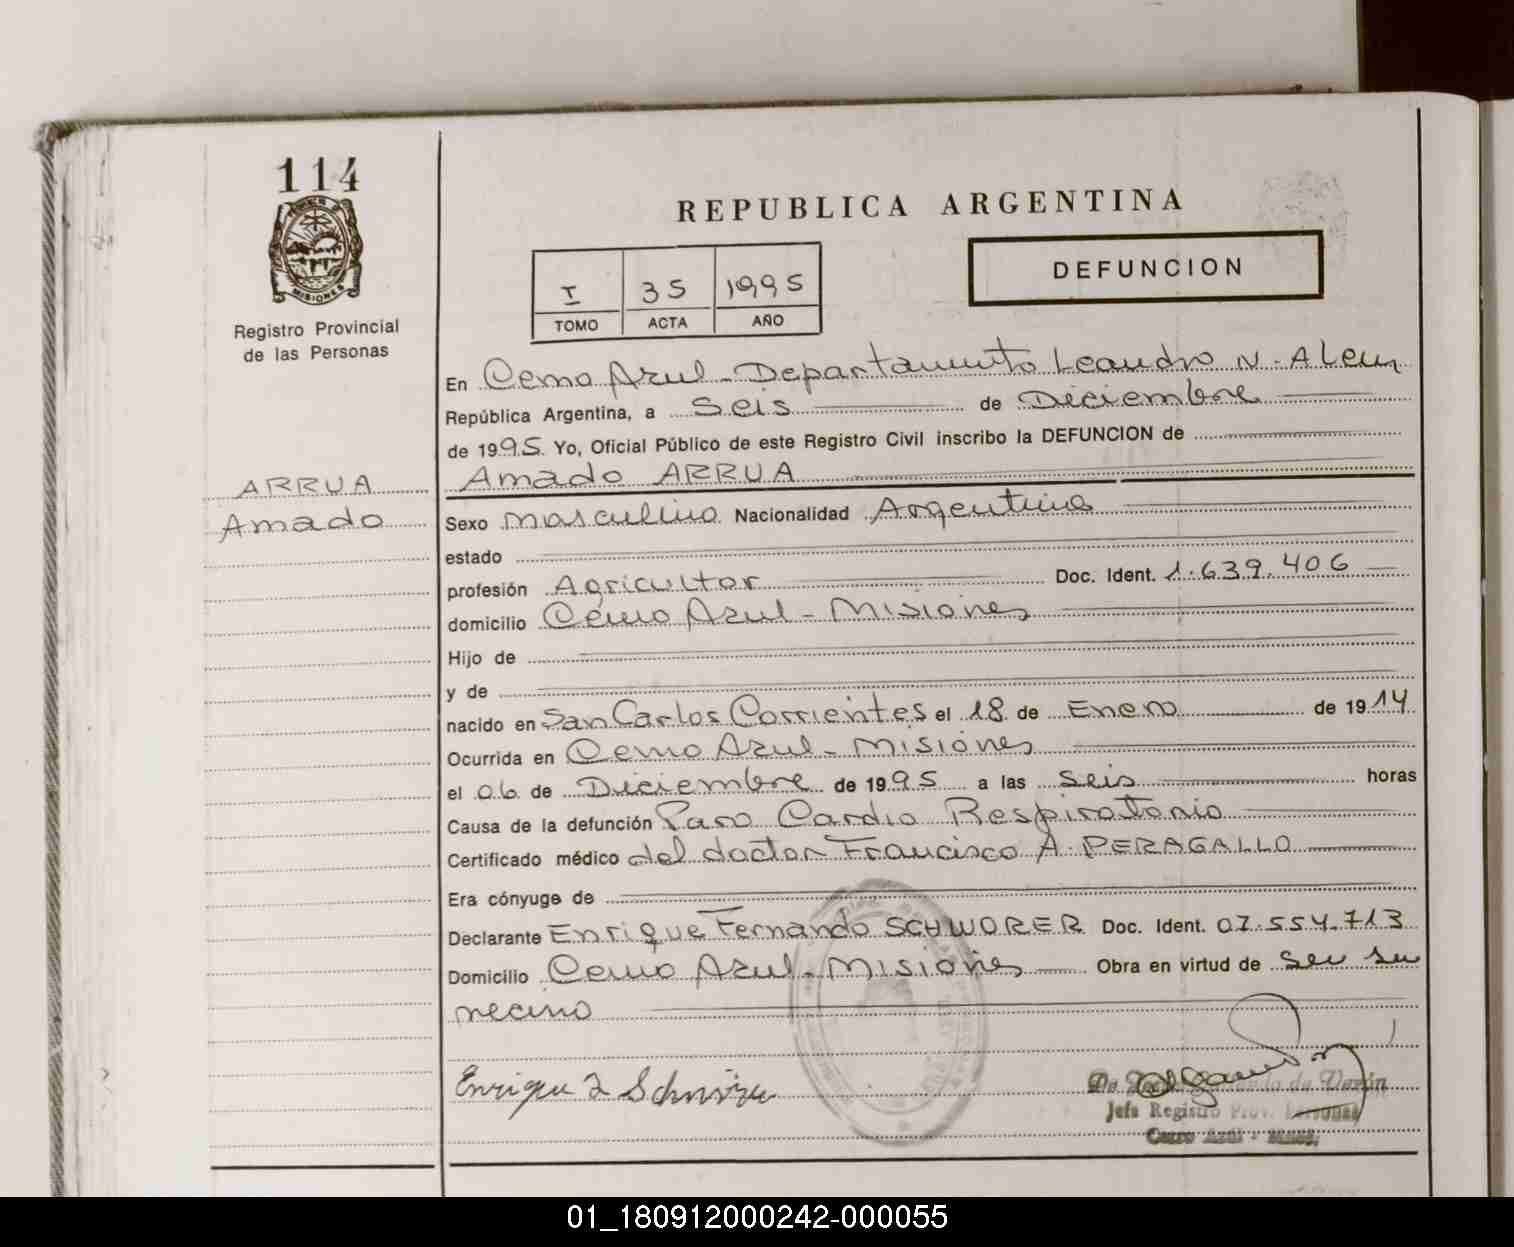 114
MISIONES
Registro Provincial
de las Personas
ARRUA
Amado
REPUBLICA ARGENTINA
I 35 1995
TOMO ACTA AÑO
DEFUNCION
En Cerro Azul - Departamento Leandro N. Alem
República Argentina, a Seis de Diciembre
de 1995 Yo, Oficial Público de este Registro Civil inscribo la DEFUNCION de
Amado ARRUA
Sexo masculino Nacionalidad Argentina
estado
profesión Agricultor Doc. Ident. 1.639.406
domicilio Cerro Azul - Misiones
Hijo de
y de
nacido en San Carlos Corrientes el 18 de Enero de 1914
Ocurrida en Cerro Azul - Misiones
el 06 de Diciembre de 1995 a las Seis horas
Causa de la defunción Paro Cardio Respiratorio
Certificado médico del doctor Francisco A. PERAGALLO
Era cónyuge de
Declarante Enrique Fernando SCHWORER Doc. Ident. 07.554.713
Domicilio Cerro Azul - Misiones Obra en virtud de ser su
vecino
Enrique F Schwörer
Jefe Registro Prov. Personas
Cerro Azul - Mnes.
01_180912000242-000055